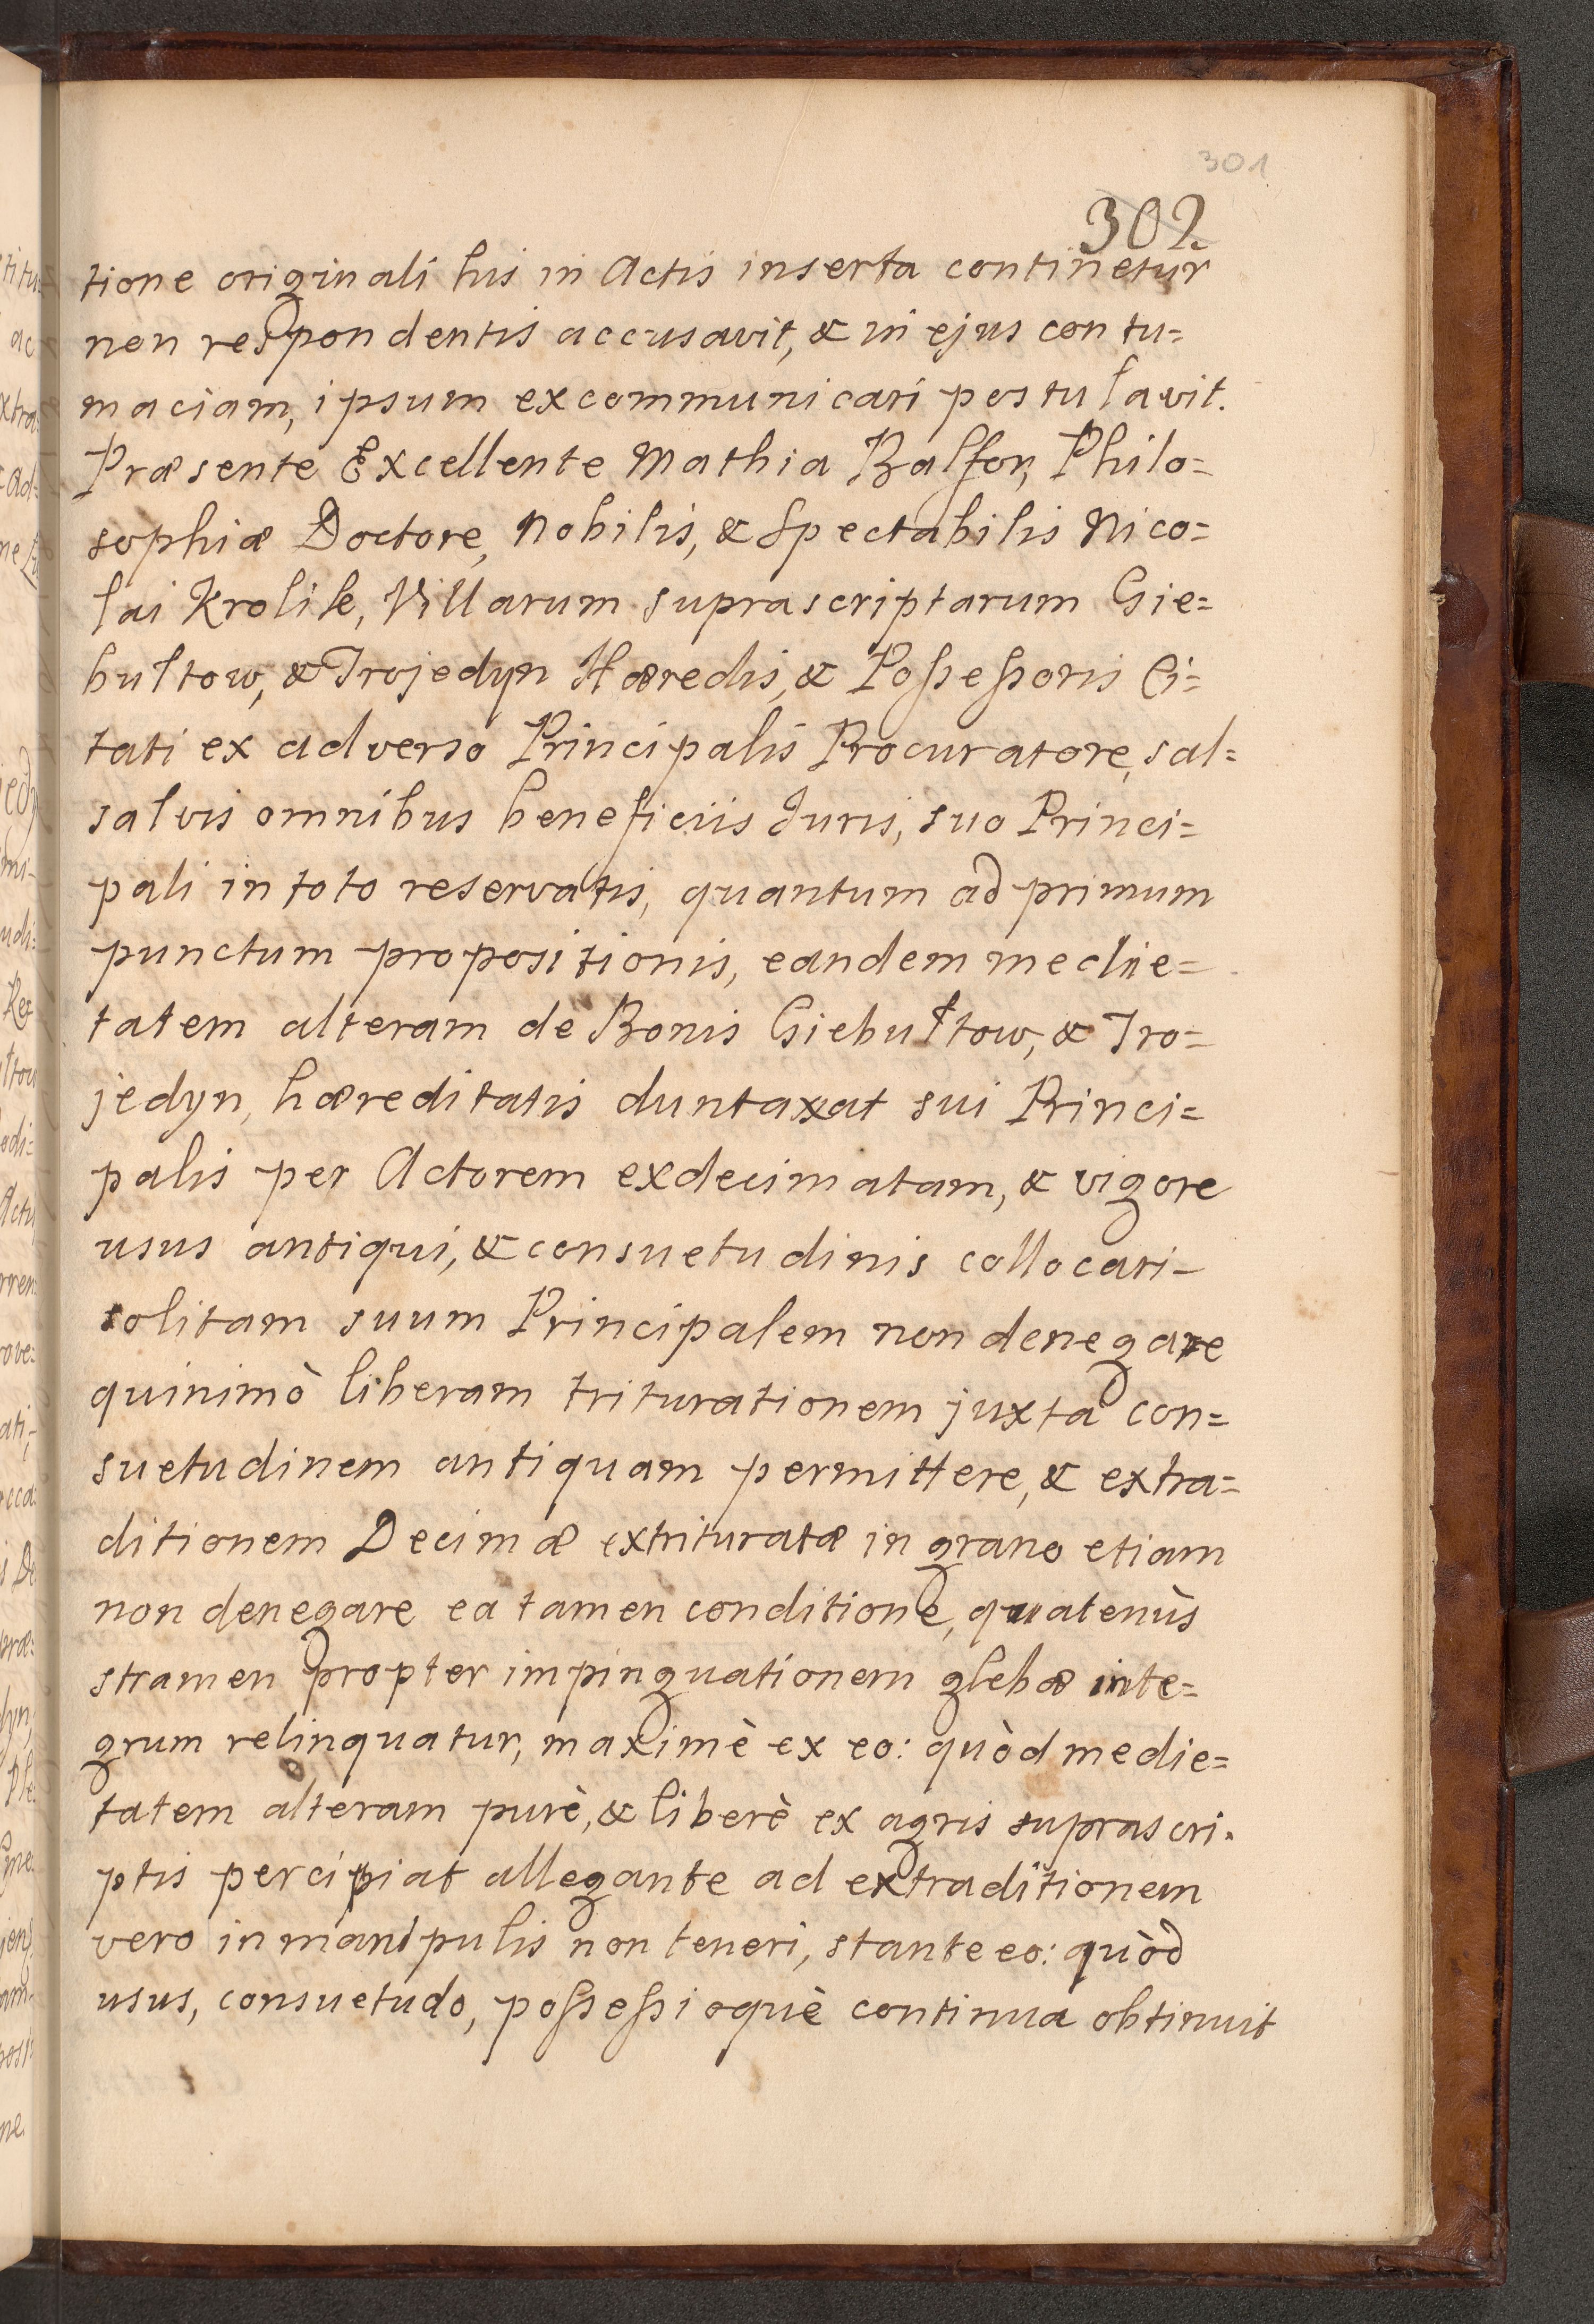 301
302
tione originali his in Actis inserta continetur
non respondentis accusavit, & in ejus contu=
maciam, ipsum excommunicari postulavit.
Præsente Excellente Mathia Balfor, Philo=
sophiæ Doctore, Nobilis, & Spectabilis Nico=
lai Krolik, Villarum suprascriptarum Gie=
bułtow, & Trojedyn Hæredis, & Possessoris Ci=
tati ex adverso Principalis Procuratore, sal=
salvis omnibus beneficiis Juris, suo Princi=
pali in toto reservatis, quantum ad primum
punctum propositionis, eandem medie=
tatem alteram de Bonis Giebułtow, & Tro=
jedyn, hæreditatis duntaxat sui Princi=
palis per Actorem exdecimatam, & vigore
usus antiqui, & consuetudinis collocari-
solitam suum Principalem non denegare
quinimò liberam triturationem juxta con=
suetudinem antiquam permittere, & extra=
ditionem Decimæ extrituratæ in grano etiam
non denegare ea tamen conditione, quatenùs
stramen propter impinguationem glebæ inte=
grum relinquatur, maximè ex eo: quòd medie=
tatem alteram purè, & liberè ex agris suprascri-
ptis percipiat allegante ad extraditionem
vero in manipulis non teneri, stante eo: quòd
usus, consuetudo, possessioquè continua obtinuit